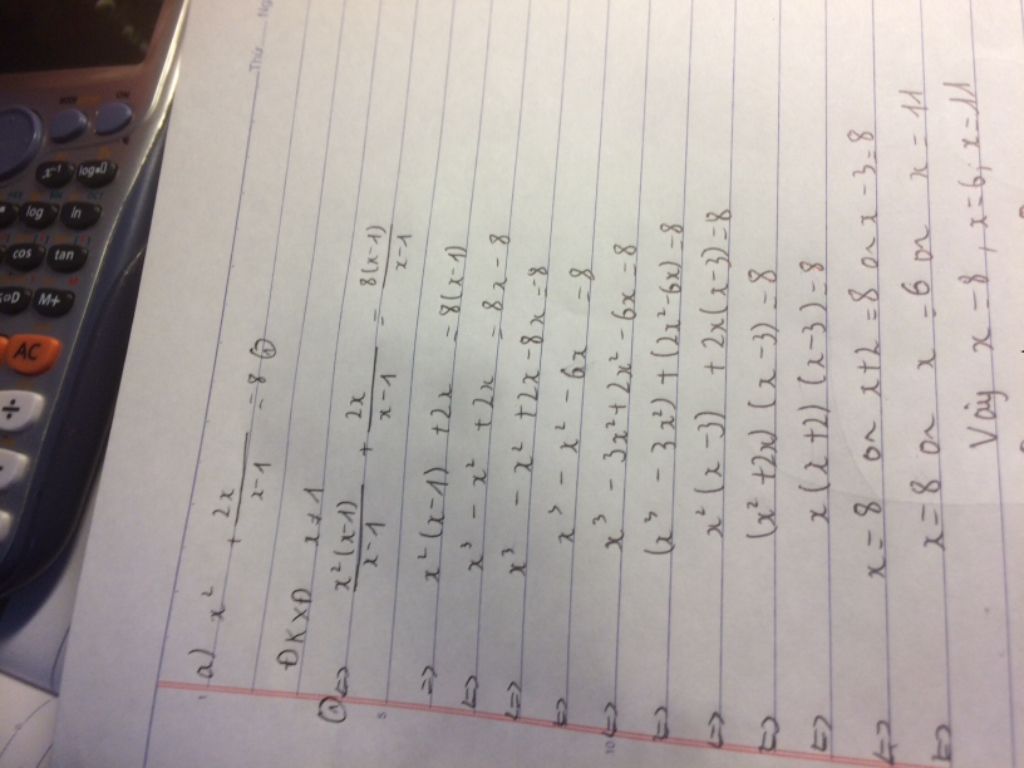 Thứ
Ng
a) x² + 2x/(x-1) = 8 (1)
ĐKXĐ x ≠ 1
(1) <=> x²(x-1)/(x-1) + 2x/(x-1) = 8(x-1)/(x-1)
=> x²(x-1) + 2x = 8(x-1)
<=> x³ - x² + 2x = 8x - 8
<=> x³ - x² + 2x - 8x = 8
<=> x³ - x² - 6x = 8
<=> x³ - 3x² + 2x² - 6x = 8
<=> (x³ - 3x²) + (2x² - 6x) = 8
<=> x²(x-3) + 2x(x-3) = 8
<=> (x² + 2x)(x-3) = 8
<=> x(x+2)(x-3) = 8
<=> x = 8 or x+2 = 8 or x-3 = 8
<=> x = 8 or x = 6 or x = 11
Vậy x = 8, x = 6, x = 11
5
10
ON
x⁻¹
log
ln
cos
tan
M+
AC
÷